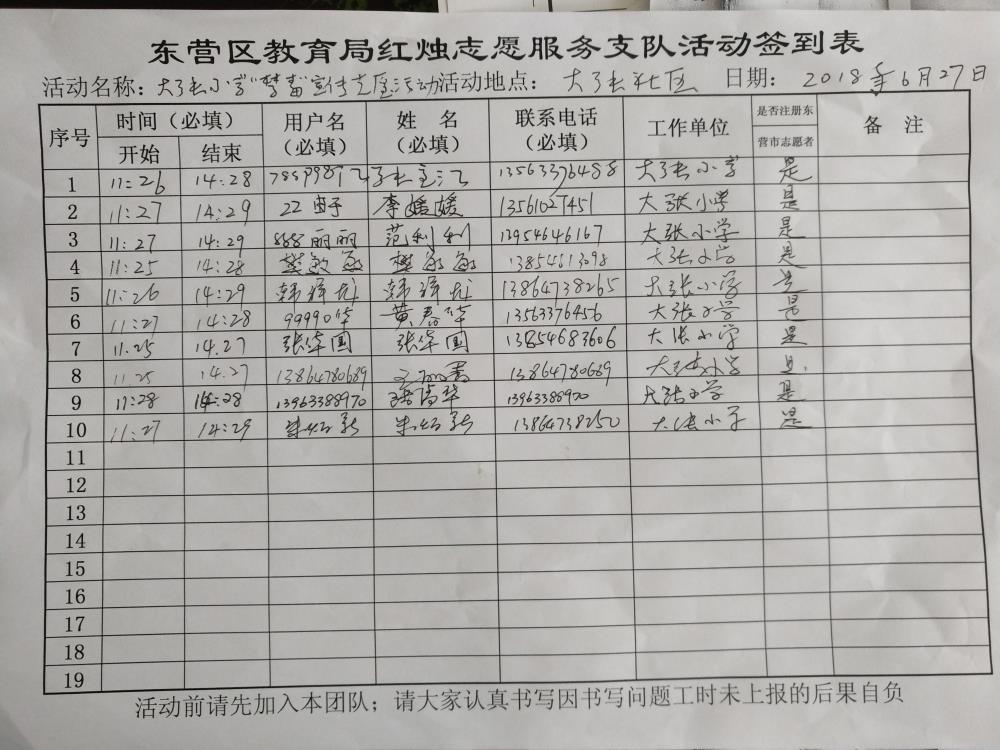 东营区教育局红烛志愿服务支队活动签到表
活动名称：大张小学"禁毒"宣传志愿活动 活动地点： 大张社区 日期： 2018年6月27日
序号 时间（必填） 用户名（必填） 姓 名（必填） 联系电话（必填） 工作单位 是否注册东营市志愿者 备 注
开始 结束
1 11:26 14:28 13563376488 大张小学 是
2 11:27 14:29 22由子 李媛媛 13561027451 大张小学 是
3 11:27 14:29 888丽丽 范利利 13954646167 大张小学 是
4 11:25 14:28 樊敏敏 樊敏敏 大张小学 是
5 11:26 14:29 13864738265 大张小学 是
6 11:27 14:28 99990华 黄春华 13563376456 大张小学 是
7 11.25 14.27 张华国 张华国 13854683606 大张小学 是
8 11:25 14.27 13864780689 13864780689 大张小学 是
9 11:28 14:28 13963388970 13963388970 大张小学 是
10 11:27 14:29 13864738250 大张小学 是
11
12
13
14
15
16
17
18
19
活动前请先加入本团队；请大家认真书写因书写问题工时未上报的后果自负